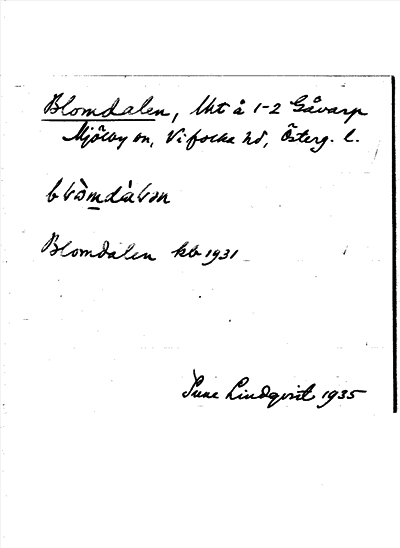 Blomdalen, lht å 1-2 Gåvarp
Mjölby sn, Vifolka hd, Österg. l.
Blomdalen kb 1931
Sune Lindqvist 1935